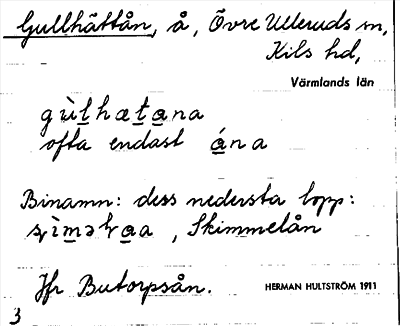 Gullhättån, å, Övre Ulleruds sn,
Kils hd,
Värmlands län
ofta endast ána
Binamn: dess nedersta lopp:
, Skimmelån
Jfr Butorpsån.
HERMAN HULTSTRÖM 1911
3